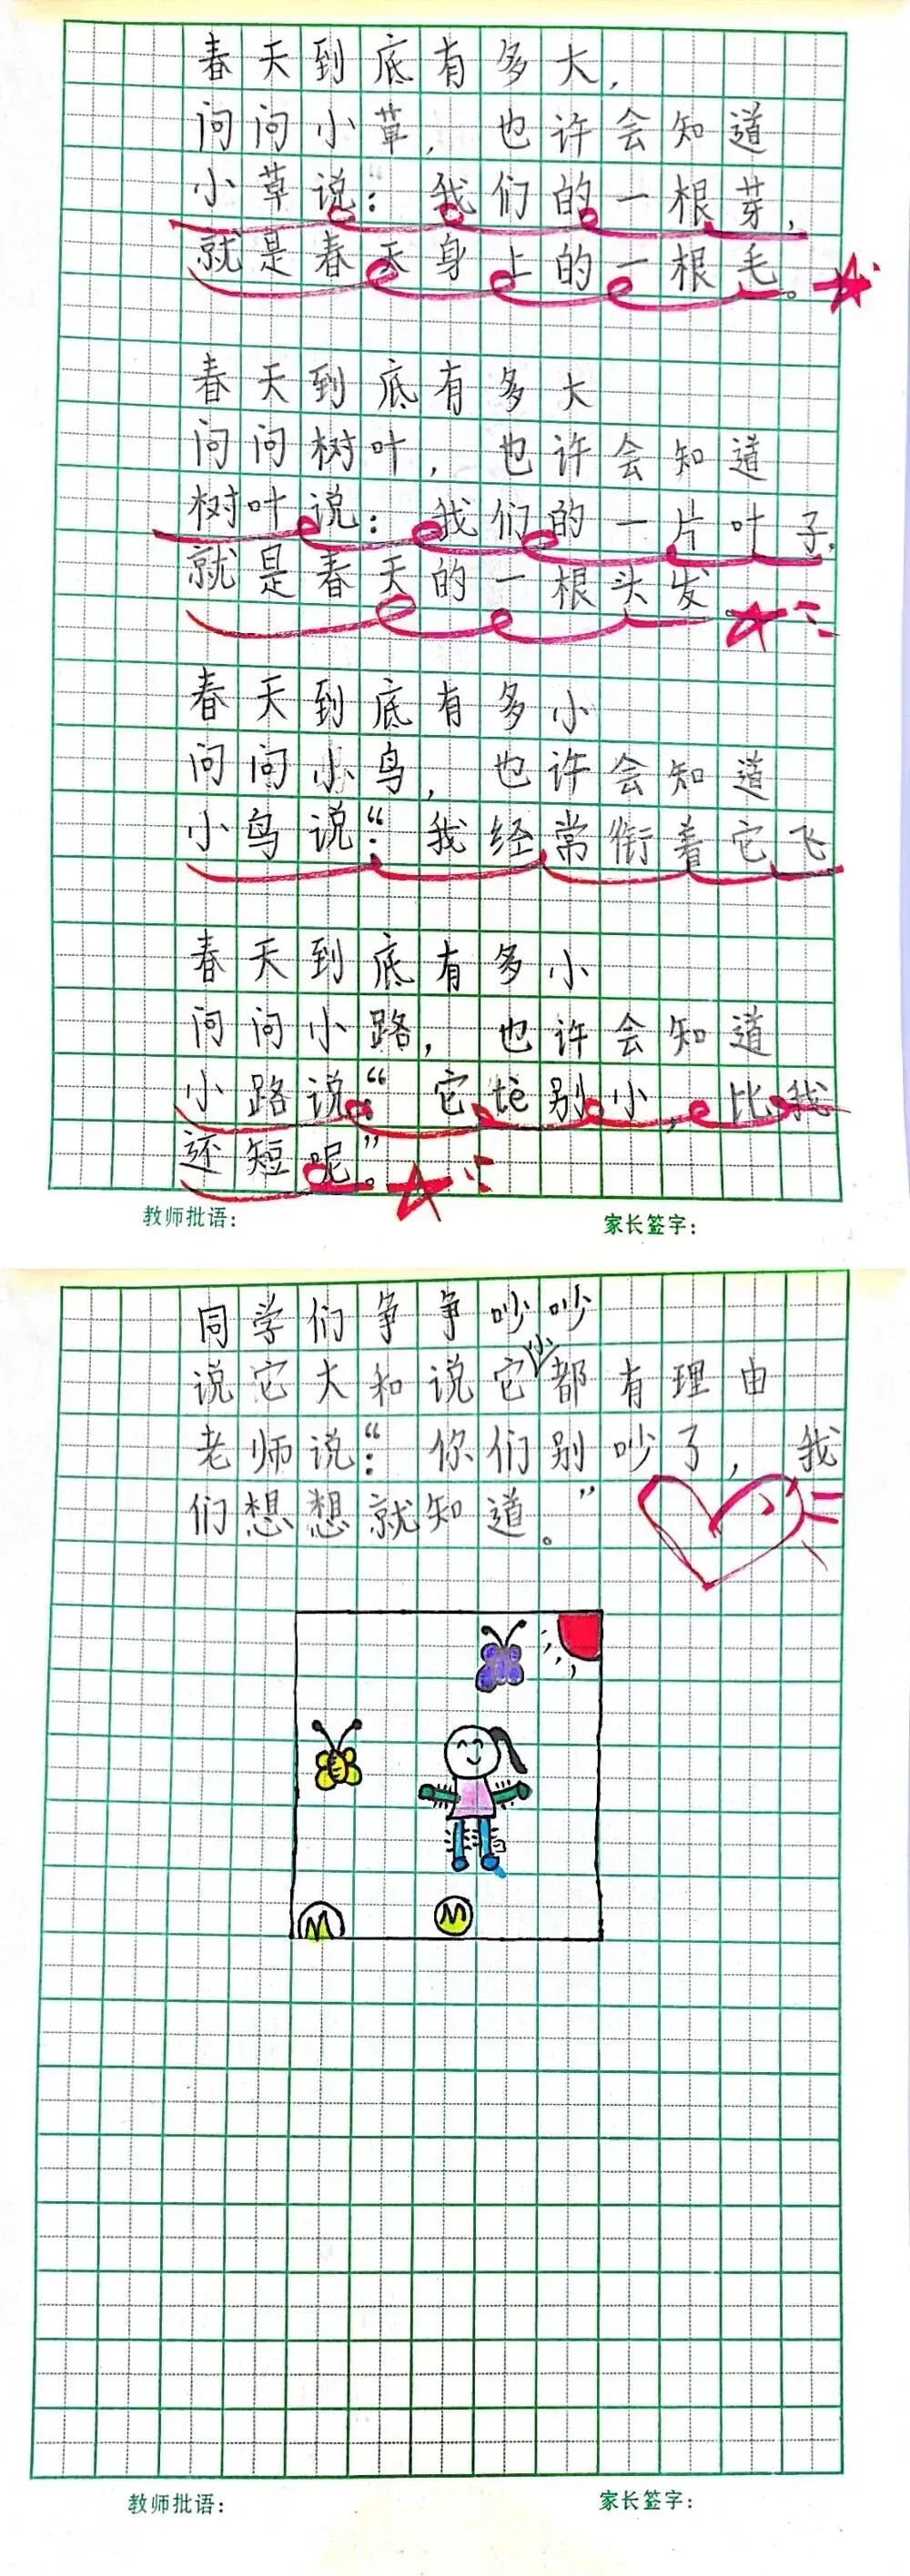 春天到底有多大,
问问小草, 也许会知道
小草说: 我们的一根芽,
就是春天身上的一根毛。
春天到底有多大
问问树叶, 也许会知道
树叶说: 我们的一片叶子,
就是春天的一根头发
春天到底有多小
问问小鸟, 也许会知道
小鸟说:“我经常衔着它飞
春天到底有多小
问问小路, 也许会知道
小路说:“它tè别小, 比我
还短呢。”
教师批语: 家长签字:
同学们争争吵吵
说它大和说它小都有理由
老师说:“你们别吵了, 我
们想想就知道。”
教师批语: 家长签字: